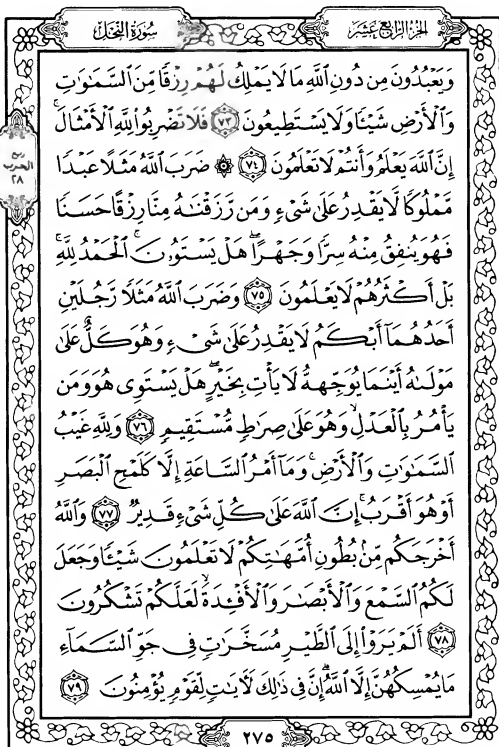 الجزء الرابع عشر
سورة النحل
وَيَعْبُدُونَ مِن دُونِ ٱللَّهِ مَا لَا يَمْلِكُ لَهُمْ رِزْقًا مِّنَ ٱلسَّمَٰوَٰتِ
وَٱلْأَرْضِ شَيْـًٔا وَلَا يَسْتَطِيعُونَ ٧٣ فَلَا تَضْرِبُوا۟ لِلَّهِ ٱلْأَمْثَالَ ۚ
إِنَّ ٱللَّهَ يَعْلَمُ وَأَنتُمْ لَا تَعْلَمُونَ ٧٤ ۞ ضَرَبَ ٱللَّهُ مَثَلًا عَبْدًا
مَّمْلُوكًا لَّا يَقْدِرُ عَلَىٰ شَىْءٍ وَمَن رَّزَقْنَٰهُ مِنَّا رِزْقًا حَسَنًا
فَهُوَ يُنفِقُ مِنْهُ سِرًّا وَجَهْرًا ۖ هَلْ يَسْتَوُۥنَ ۚ ٱلْحَمْدُ لِلَّهِ ۚ
بَلْ أَكْثَرُهُمْ لَا يَعْلَمُونَ ٧٥ وَضَرَبَ ٱللَّهُ مَثَلًا رَّجُلَيْنِ
أَحَدُهُمَآ أَبْكَمُ لَا يَقْدِرُ عَلَىٰ شَىْءٍ وَهُوَ كَلٌّ عَلَىٰ
مَوْلَىٰهُ أَيْنَمَا يُوَجِّههُّ لَا يَأْتِ بِخَيْرٍ ۖ هَلْ يَسْتَوِى هُوَ وَمَن
يَأْمُرُ بِٱلْعَدْلِ ۙ وَهُوَ عَلَىٰ صِرَٰطٍ مُّسْتَقِيمٍ ٧٦ وَلِلَّهِ غَيْبُ
ٱلسَّمَٰوَٰتِ وَٱلْأَرْضِ ۚ وَمَآ أَمْرُ ٱلسَّاعَةِ إِلَّا كَلَمْحِ ٱلْبَصَرِ
أَوْ هُوَ أَقْرَبُ ۚ إِنَّ ٱللَّهَ عَلَىٰ كُلِّ شَىْءٍ قَدِيرٌ ٧٧ وَٱللَّهُ
أَخْرَجَكُم مِّنۢ بُطُونِ أُمَّهَٰتِكُمْ لَا تَعْلَمُونَ شَيْـًٔا وَجَعَلَ
لَكُمُ ٱلسَّمْعَ وَٱلْأَبْصَٰرَ وَٱلْأَفْـِٔدَةَ ۙ لَعَلَّكُمْ تَشْكُرُونَ
٧٨ أَلَمْ يَرَوْا۟ إِلَى ٱلطَّيْرِ مُسَخَّرَٰتٍ فِى جَوِّ ٱلسَّمَآءِ
مَا يُمْسِكُهُنَّ إِلَّا ٱللَّهُ ۗ إِنَّ فِى ذَٰلِكَ لَءَايَٰتٍ لِّقَوْمٍ يُؤْمِنُونَ ٧٩
ربع
الحزب
٢٨
٢٧٥